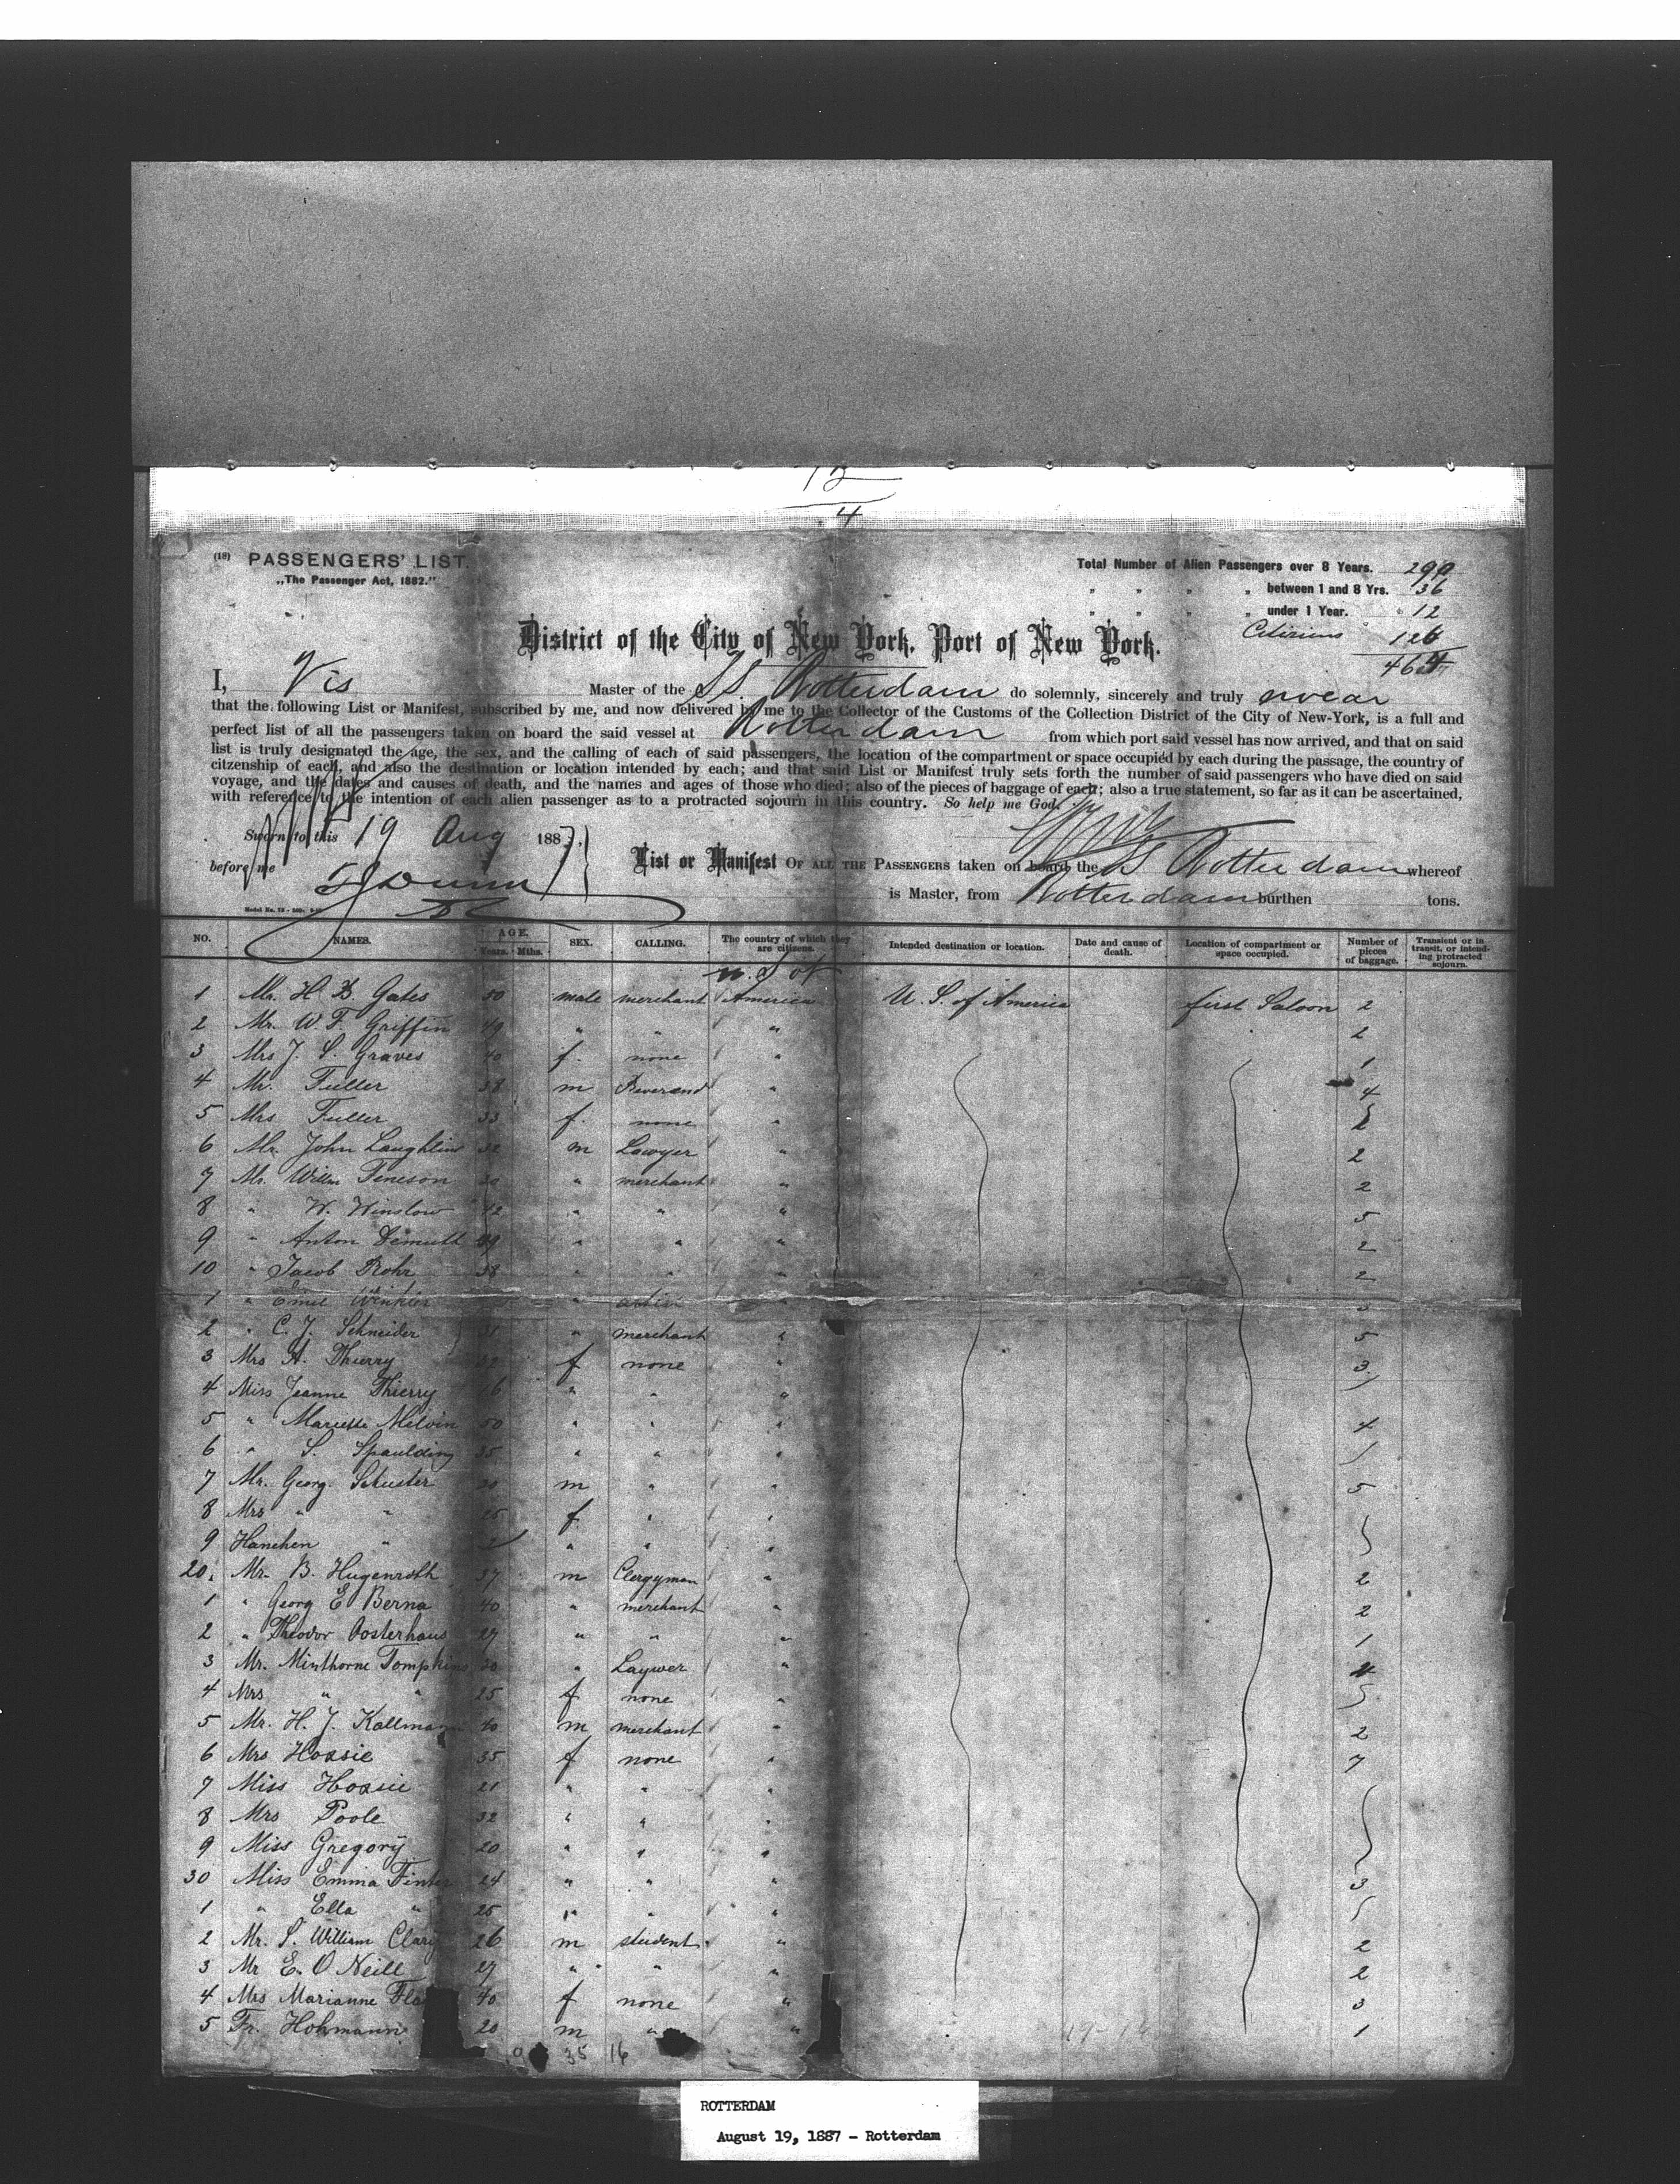 12
4
(18) PASSENGERS' LIST.
„The Passenger Act, 1882."
Total Number of Alien Passengers over 8 Years. 290
" " " " between 1 and 8 Yrs. 36
" " " " under 1 Year. 12
Citiziens 126
464
District of the City of New York, Port of New York.
I, Vis Master of the SS. Rotterdam do solemnly, sincerely and truly swear
that the following List or Manifest, subscribed by me, and now delivered by me to the Collector of the Customs of the Collection District of the City of New-York, is a full and
perfect list of all the passengers taken on board the said vessel at Rotterdam from which port said vessel has now arrived, and that on said
list is truly designated the age, the sex, and the calling of each of said passengers, the location of the compartment or space occupied by each during the passage, the country of
citzenship of each, and also the destination or location intended by each; and that said List or Manifest truly sets forth the number of said passengers who have died on said
voyage, and the dates and causes of death, and the names and ages of those who died; also of the pieces of baggage of each; also a true statement, so far as it can be ascertained,
with reference to the intention of each alien passenger as to a protracted sojourn in this country. So help me God.
Sworn to this 19 Aug 1887.
before me
List or Manifest OF ALL THE PASSENGERS taken on board the SS Rotterdam whereof
is Master, from Rotterdam burthen tons.
NO. NAMES. AGE. Years. Mths. SEX. CALLING. The country of which they are citizens. Intended destination or location. Date and cause of death. Location of compartment or space occupied. Number of pieces of baggage. Transient or in transit, or intending protracted sojourn.
U. S of
1 Mr. H. B. Gates 50 male merchant America U. S. of America first Saloon 2
2 Mr. W. F. Griffin 49 " " " 2
3 Mrs J. S. Graves 40 f. none " 1
4 Mr. Fuller 38 m Reverend " 4
5 Mrs Fuller 33 f. none "
6 Mr. John Laughlin 32 m Lawyer " 2
7 Mr. Willm Teneson 30 " merchant " 2
8 " W. Winslow 42 " " " 5
9 " Anton Demuth 39 " " " 2
10 " Jacob Rohr 38 " " " 2
1 " Emil Winkler " "
2 " C. J. Schneider 31 " merchant " 5
3 Mrs A. Thierry 32 f none " 3
4 Miss Jeanne Thierry 16 " " "
5 " Mariette Melvin 50 " " " 4
6 " S. Spaulding 35 " " "
7 Mr. Georg. Schuster 30 m " " 5
8 Mrs " " 25 f " "
9 Hanchen " 2 " " "
20. Mr. B. Hugenroth 37 m Clergyman " 2
1 " Georg E Berna 40 " merchant " 2
2 " Theodor Oosterhaus 27 " " " 1
3 Mr. Minthorne Tompkins 30 " Laywer " 4
4 Mrs " " 25 f none "
5 Mr. H. J. Kollmann 40 m merchant " 2
6 Mrs Hoasie 35 f none " 7
7 Miss Hoasie 21 " " "
8 Mrs Poole 32 " " "
9 Miss Gregory 20 " " "
30 Miss Emma Finter 24 " " " 3
1 " Ella " 25 " " "
2 Mr. S. William Clary 26 m student " 2
3 Mr E. O Neill 27 " " " 2
4 Mrs Marianne 40 f none " 3
5 Fr. Hohmann 20 m " " 1
35 16
ROTTERDAM
August 19, 1887 - Rotterdam